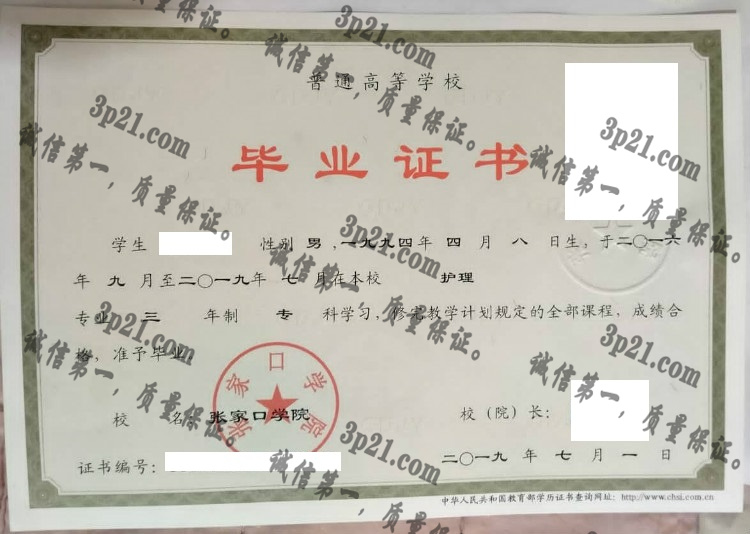 普通高等学校
毕业证书
学生 性别 男，一九九四年 四 月 八 日生，于二〇一六
年 九 月至二〇一九年 七 月在本校 护理
专业 三 年制 专 科学习，修完教学计划规定的全部课程，成绩合
格，准予毕业。
张家口学院
校 名 张家口学院
校（院）长：
证书编号：
二〇一九 年 七 月 一 日
中华人民共和国教育部学历证书查询网址：http://www.chsi.com.cn
3p21.com
诚信第一，质量保证。
3p21.com
诚信第一，质量保证。
3p21.com
诚信第一，质量保证。
3p21.com
诚信第一，质量保证。
3p21.com
诚信第一，质量保证。
3p21.com
诚信第一，质量保证。
3p21.com
诚信第一，质量保证。